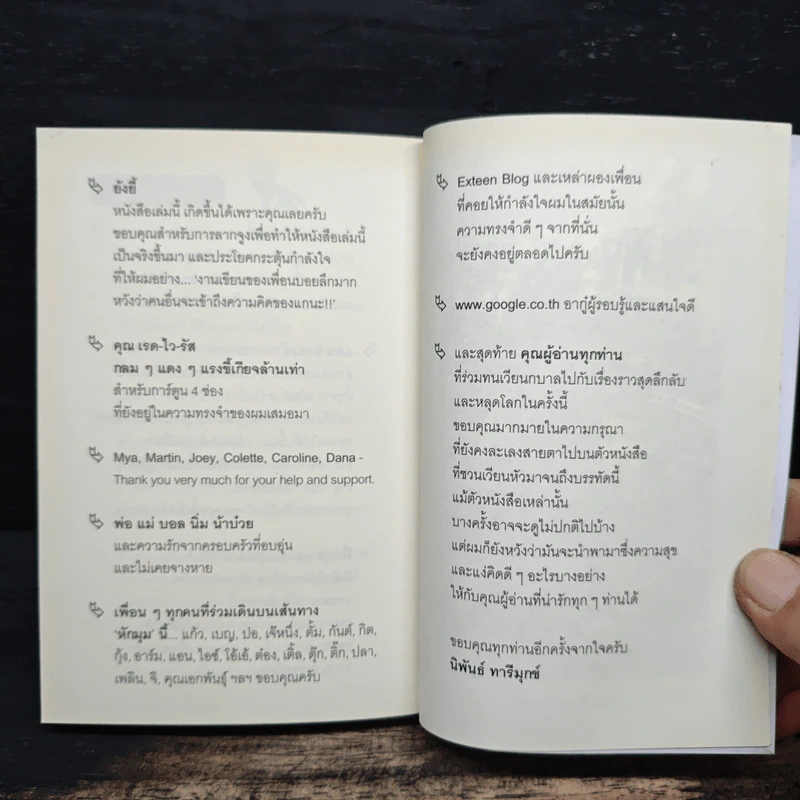 ยังยี้
หนังสือเล่มนี้ เกิดขึ้นได้เพราะคุณเลยครับ
ขอบคุณสำหรับการลากจูงเพื่อทำให้หนังสือเล่มนี้
เป็นจริงขึ้นมา และประโยคกระตุ้นกำลังใจ
ที่ให้ผมอย่าง... 'งานเขียนของเพื่อนบอยลึกมาก
หวังว่าคนอื่นจะเข้าถึงความคิดของแกนะ!!'
คุณ เรด-ไว-รัส
กลม ๆ แดง ๆ แรงขี้เกียจล้านเท่า
สำหรับการ์ตูน 4 ช่อง
ที่ยังอยู่ในความทรงจำของผมเสมอมา
Mya, Martin, Joey, Colette, Caroline, Dana -
Thank you very much for your help and support.
พ่อ แม่ บอล นิ่ม น้าบ๋วย
และความรักจากครอบครัวที่อบอุ่น
และไม่เคยจางหาย
เพื่อน ๆ ทุกคนที่ร่วมเดินบนเส้นทาง
'หักมุม' นี้... แก้ว, เบญ, ปอ, เจ๊หนึ่ง, ตั้ม, กันต์, กิต,
กุ้ง, อาร์ม, แอน, ไอซ์, โอ้เอ้, ต๋อง, เติ้ล, ตุ๊ก, ติ๊ก, ปลา,
เพลิน, จิ, คุณเอกพันธุ์ ฯลฯ ขอบคุณครับ
Exteen Blog และเหล่าผองเพื่อน
ที่คอยให้กำลังใจผมในสมัยนั้น
ความทรงจำดี ๆ จากที่นั่น
จะยังคงอยู่ตลอดไปครับ
www.google.co.th อากู๋ผู้รอบรู้และแสนใจดี
และสุดท้าย คุณผู้อ่านทุกท่าน
ที่ร่วมทนเวียนกบาลไปกับเรื่องราวสุดลึกลับ
และหลุดโลกในครั้งนี้
ขอบคุณมากมายในความกรุณา
ที่ยังคงละเลงสายตาไปบนตัวหนังสือ
ที่ชวนเวียนหัวมาจนถึงบรรทัดนี้
แม้ตัวหนังสือเหล่านั้น
บางครั้งอาจจะดูไม่ปกติไปบ้าง
แต่ผมก็ยังหวังว่ามันจะนำพามาซึ่งความสุข
และแง่คิดดี ๆ อะไรบางอย่าง
ให้กับคุณผู้อ่านที่น่ารักทุก ๆ ท่านได้
ขอบคุณทุกท่านอีกครั้งจากใจครับ
นิพันธ์ ทารีมุกข์